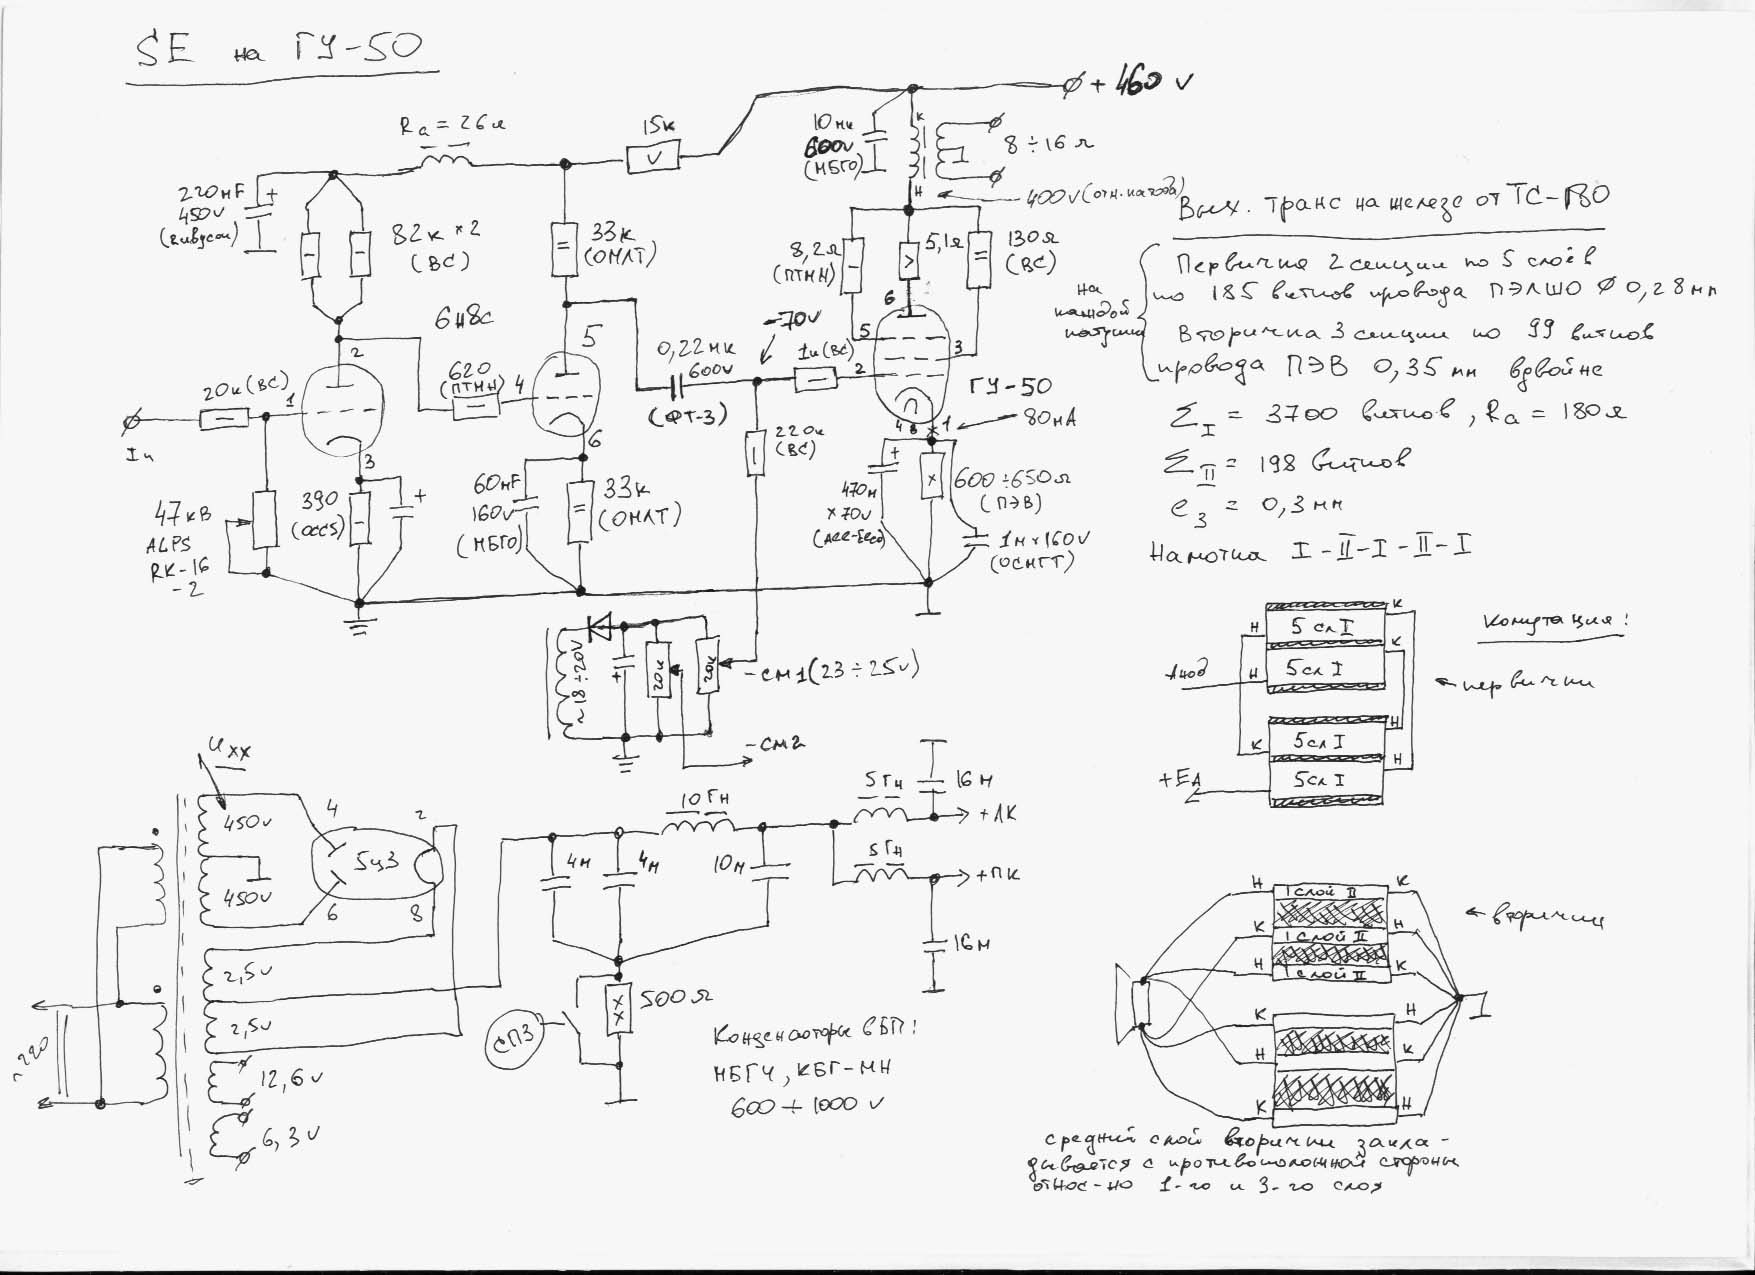 SE на ГУ-50
+ 460 v
Ra = 26 к
15к
10мк
600v
(МБГО)
К
8 ÷ 16 Ω
Н
400v (отн. катода)
220мF
450v
82к × 2
(ВС)
33к
(ОМЛТ)
8,2Ω
(ПТМН)
5,1Ω
130Ω
(ВС)
6Н8С
-70v
0,22мк
600v
(ФТ-3)
1к(ВС)
20к(ВС)
620
(ПТМН)
1
2
3
4
5
6
6
5
3
2
ГУ-50
4 8 1
80мА
In
47кВ
ALPS
RK-16
-2
390
60мF
160v
(МБГО)
33к
(ОМЛТ)
220к
(ВС)
470м
×70v
600÷650Ω
(ПЭВ)
1м×160v
(ОСМГТ)
~18÷20V
20к
20к
-СМ1(23÷25v)
-СМ2
Вых. транс на железе от ТС-180
на каждой катушке
Первичка 2 секции по 5 слоёв
по 185 витков провода ПЭЛШО Ø 0,28мм
Вторичка 3 секции по 99 витков
провода ПЭВ 0,35 мм вдвойне
Σ I = 3700 витков, Ra = 180Ω
Σ II = 198 витков
e з = 0,3мм
Намотка I-II-I-II-I
Комутация:
5 сл I
5 сл I
5 сл I
5 сл I
Н
К
К
Н
К
Н
Н
Анод
+EА
первички
Uxx
450v
450v
4
2
5ц3
6
8
2,5v
2,5v
12,6v
6,3v
~220
10Гн
4м
4м
10м
5Гн
16м
+ЛК
5Гн
+ПК
16м
СПЗ
500Ω
Конденсаторы в БП:
МБГЧ, КБГ-МН
600 ÷ 1000 v
1 слой II
1 слой II
1 слой II
Н
К
К
Н
Н
К
К
Н
Н
К
К
Н
вторички
средний слой вторички закла-
дывается с противоположной стороны
относ-но 1-го и 3-го слоя